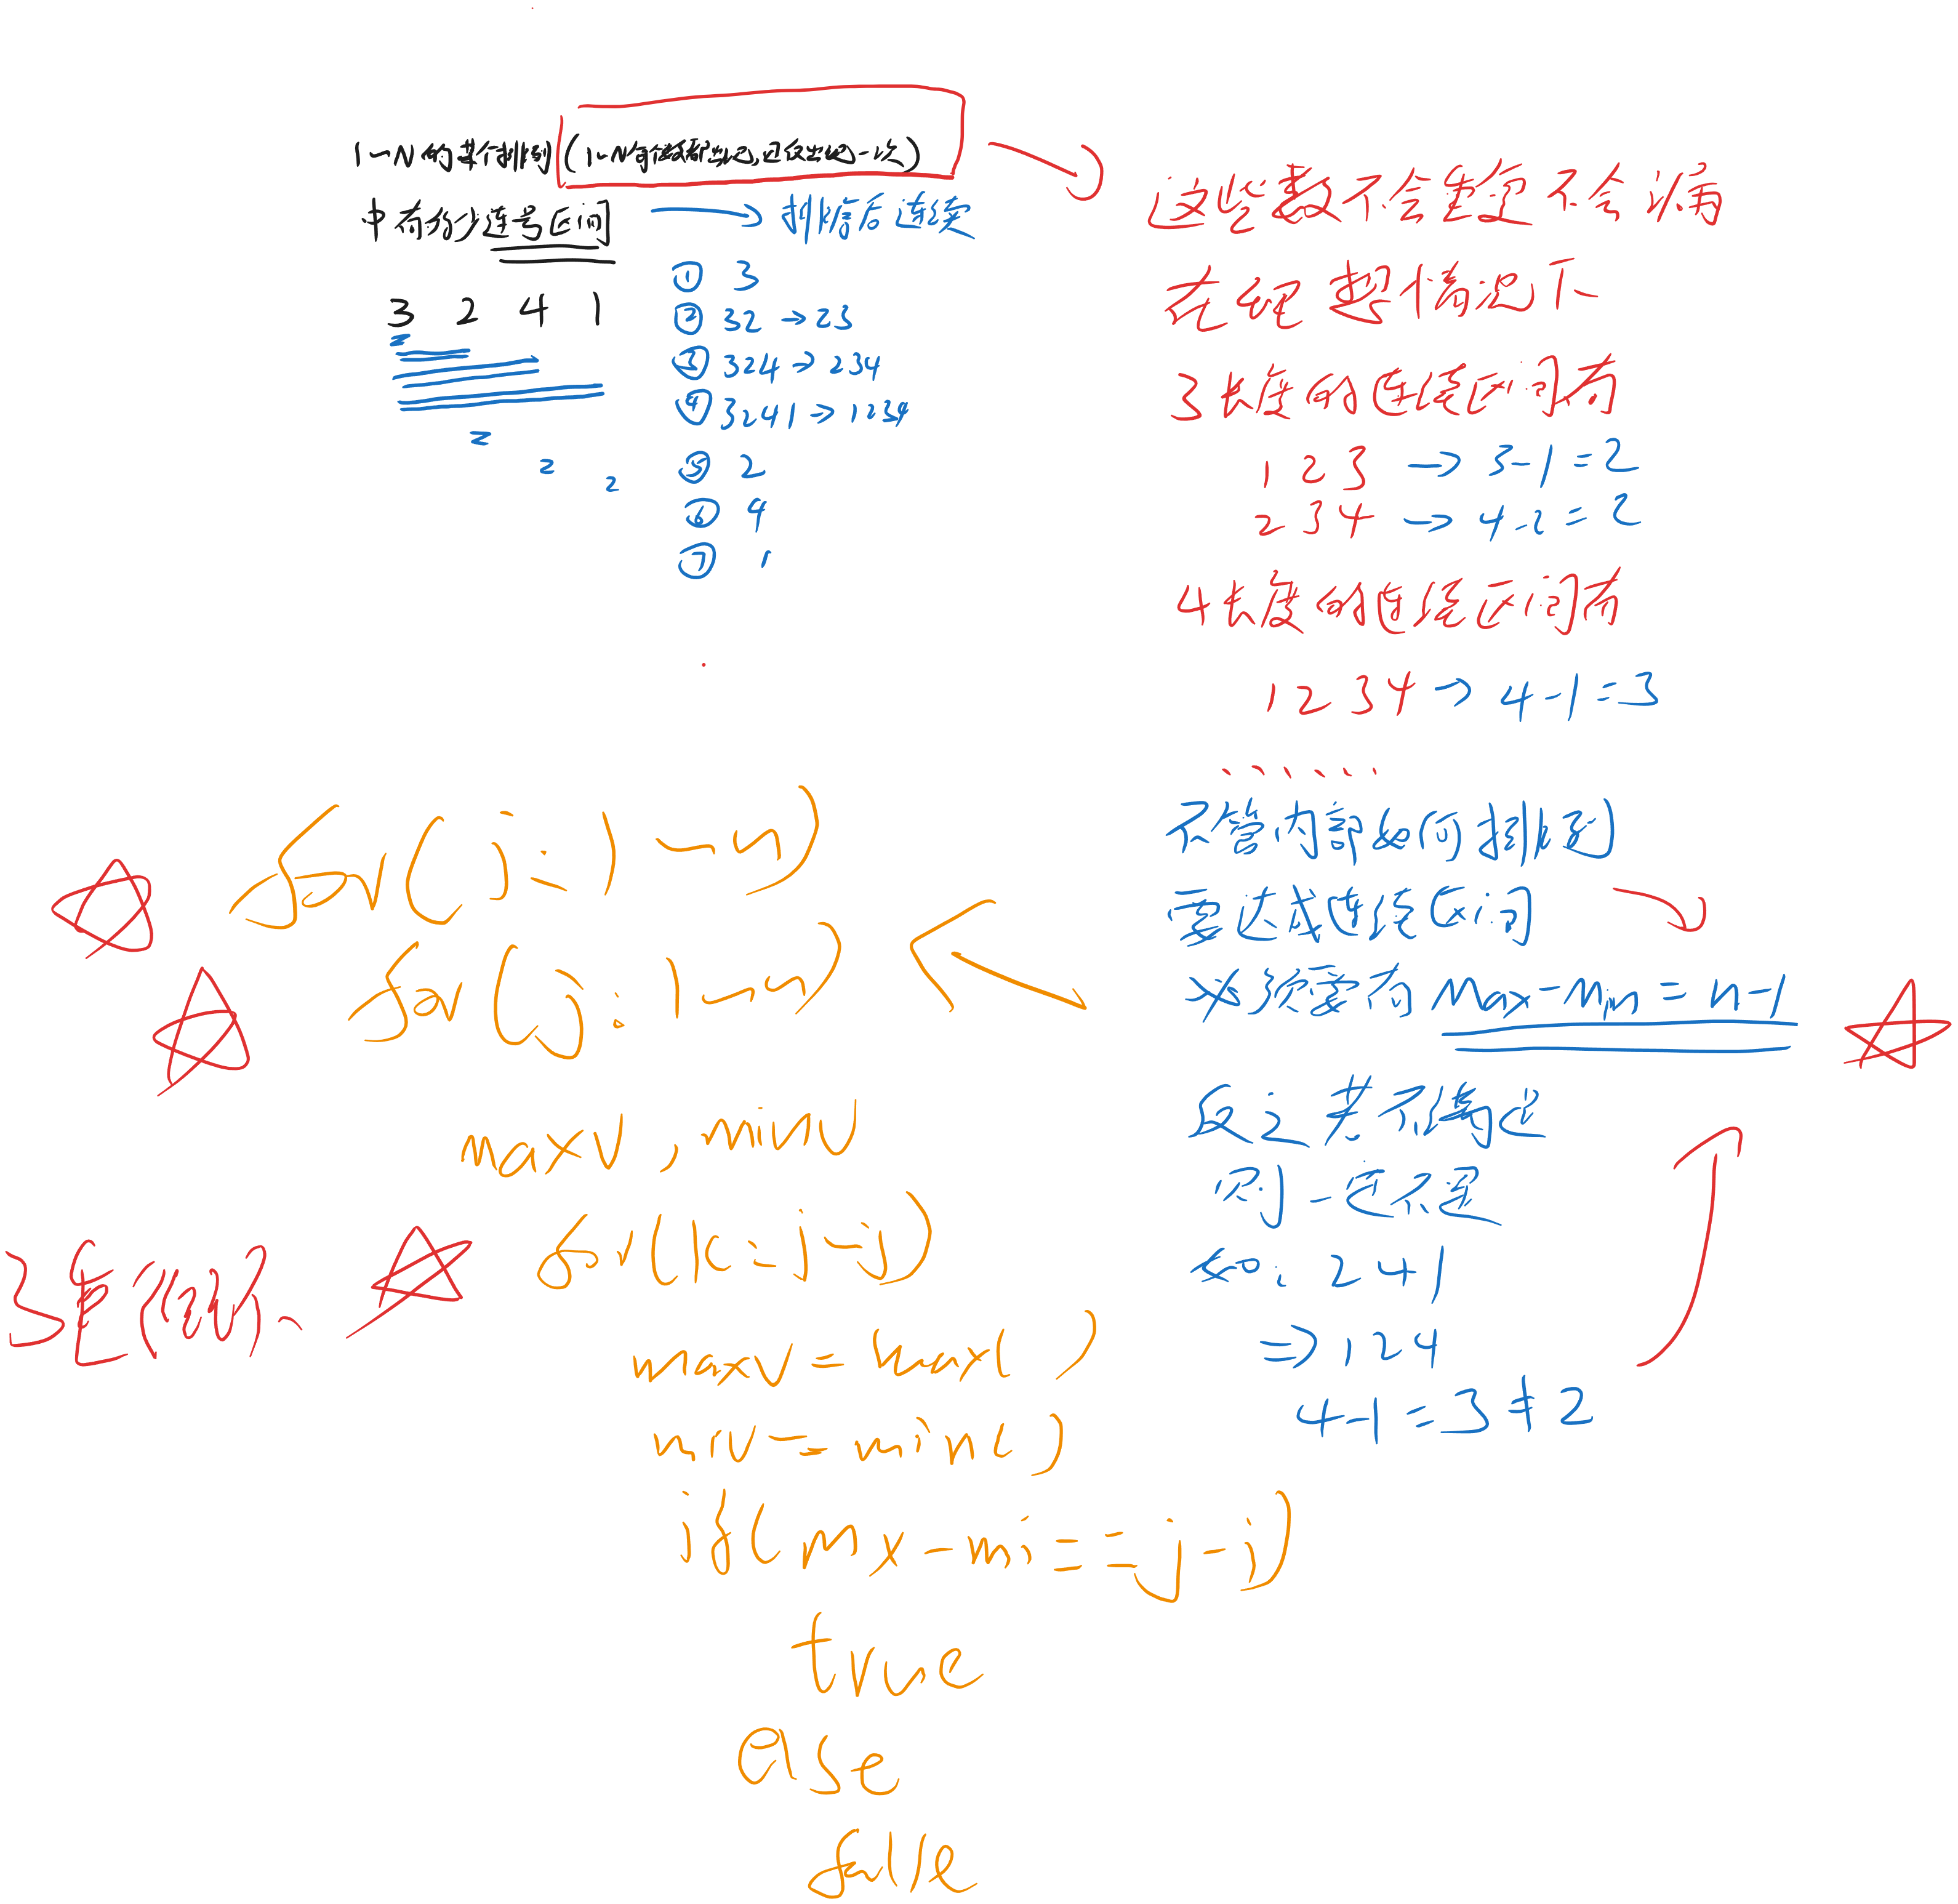 1~N的某个排列(1~N每个数都出现,且仅出现一次)
中有多少连号区间 → 排序后连续
3 2 4 1
① 3
② 32→23
③ 324→234
④ 3241→1234
⑤ 2
⑥ 4
⑦ 1
这些数不会重复不会漏
在纯 情况下
3长度的连续区间有
1 2 3 → 3-1=2
2 3 4 → 4-2=2
4长度的连续区间有
1 2 3 4 → 4-1=3
......
不管内部如何排列
要达成连续区间
必须要有 Max-Min=n-1
反之若不满足
则一定不是
如: 2 4 1
⇒ 1 2 4
4-1=3≠2
for(i:1~n)
for(j:1~n)
maxv,minv
for(k:i~j)
maxv=max( )
miv=min( )
if(mx-mi==j-i)
true
else
false
3重循环、